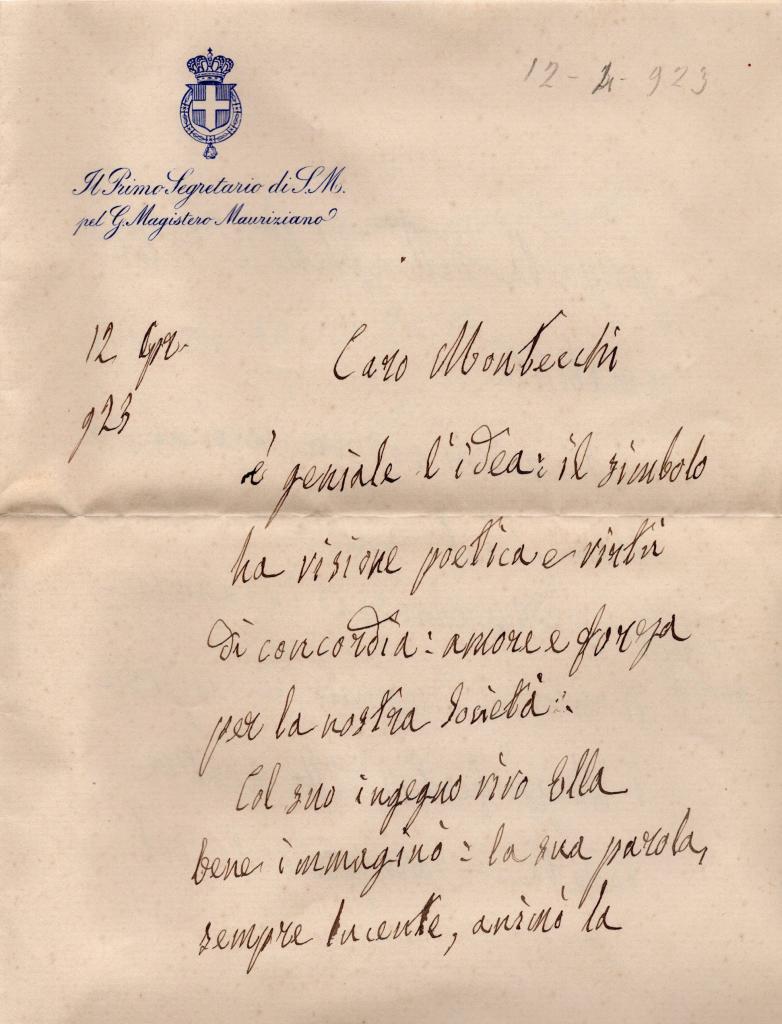 12-4-923
Il Primo Segretario di S.M.
pel G. Magistero Mauriziano
12 Apr.
923
Caro Montecchi
è geniale l'idea: il simbolo
ha visione poetica e virtù
di concordia: amore e forza
per la nostra Società.
Col suo ingegno vivo Ella
bene immaginò: la sua parola,
sempre lucente, animò la